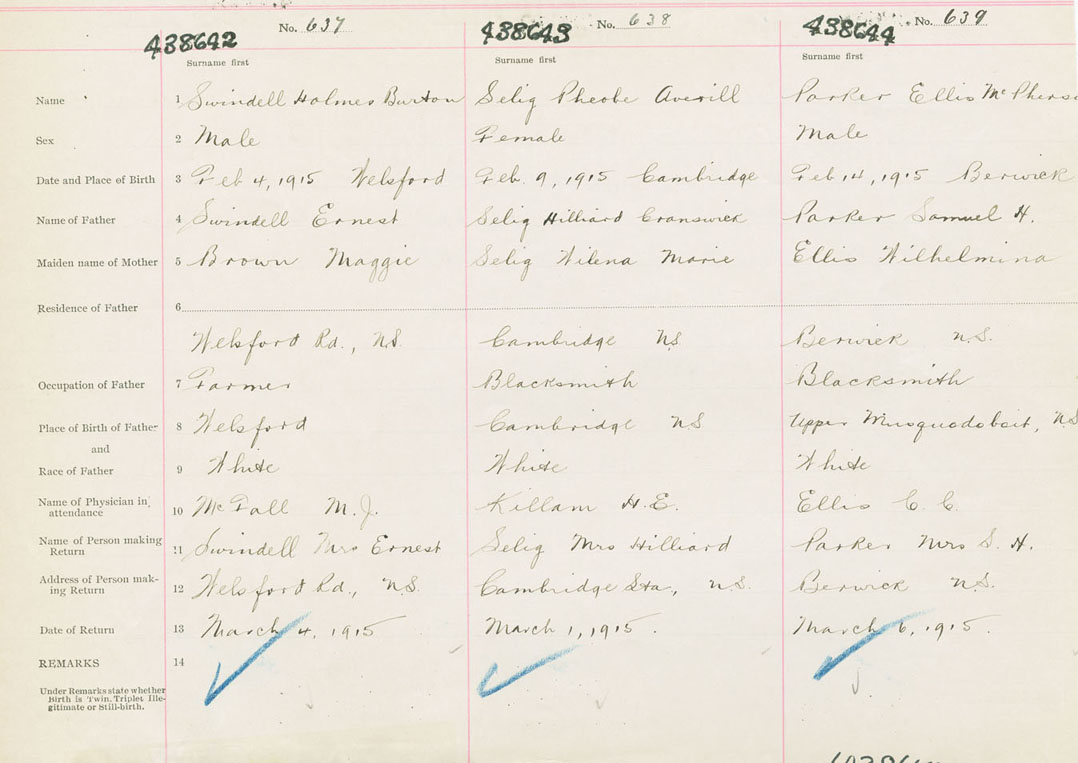 No. 637 No. 638 No. 639
438642 438643 438644
Surname first Surname first Surname first
Name 1 Swindell Holmes Burton Selig Pheobe Averill Parker Ellis McPherso
Sex 2 Male Female Male
Date and Place of Birth 3 Feb 4, 1915 Welsford Feb. 9, 1915 Cambridge Feb 14, 1915 Berwick
Name of Father 4 Swindell Ernest Selig Hilliard Cranswick Parker Samuel H.
Maiden name of Mother 5 Brown Maggie Selig Wilena Marie Ellis Wilhelmina
Residence of Father 6
Welsford Rd., N.S. Cambridge NS Berwick N.S.
Occupation of Father 7 Farmer Blacksmith Blacksmith
Place of Birth of Father 8 Welsford Cambridge NS Upper Musquodoboit, NS
and
Race of Father 9 White White White
Name of Physician in attendance 10 McFall M.J. Killam H.E. Ellis C. C.
Name of Person making Return 11 Swindell Mrs Ernest Selig Mrs Hilliard Parker Mrs S. H.
Address of Person mak-ing Return 12 Welsford Rd., N.S. Cambridge Sta, N.S. Berwick N.S.
Date of Return 13 March 4, 1915 March 1, 1915. March 6, 1915.
REMARKS 14
Under Remarks state whether
Birth is Twin, Triplet Ille-
gitimate or Still-birth.